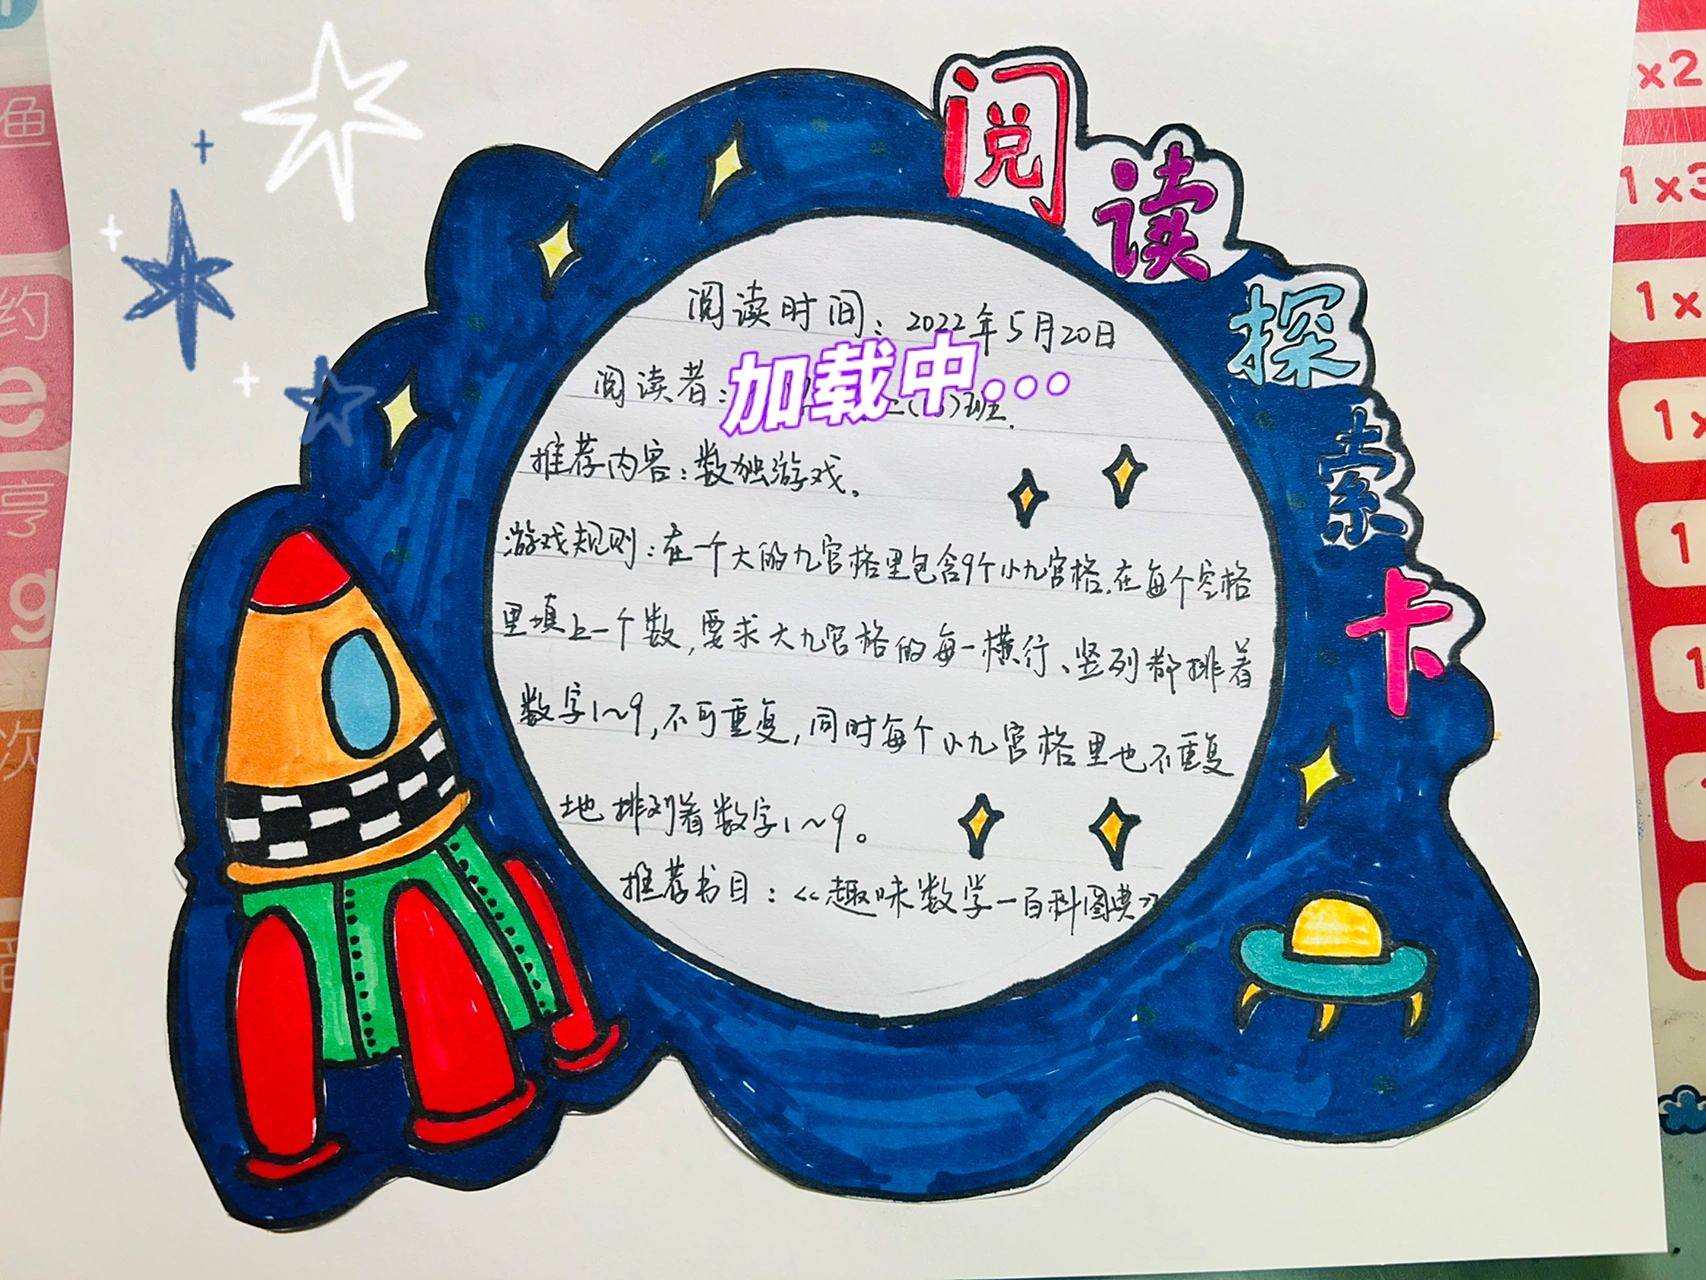 阅读探索卡
阅读时间：2022年5月20日
阅读者：
加载中...
班.
推荐内容：数独游戏。
游戏规则：在一个大的九宫格里包含9个小九宫格.在每个空格
里填上一个数,要求大九宫格的每一横行、竖列都排着
数字1～9,不可重复,同时每个小九宫格里也不重复
地排列着数字1～9。
推荐书目：《趣味数学一百科图典》
鱼
约
e
享
g
次
x2
1x3
1x
1x
1
1